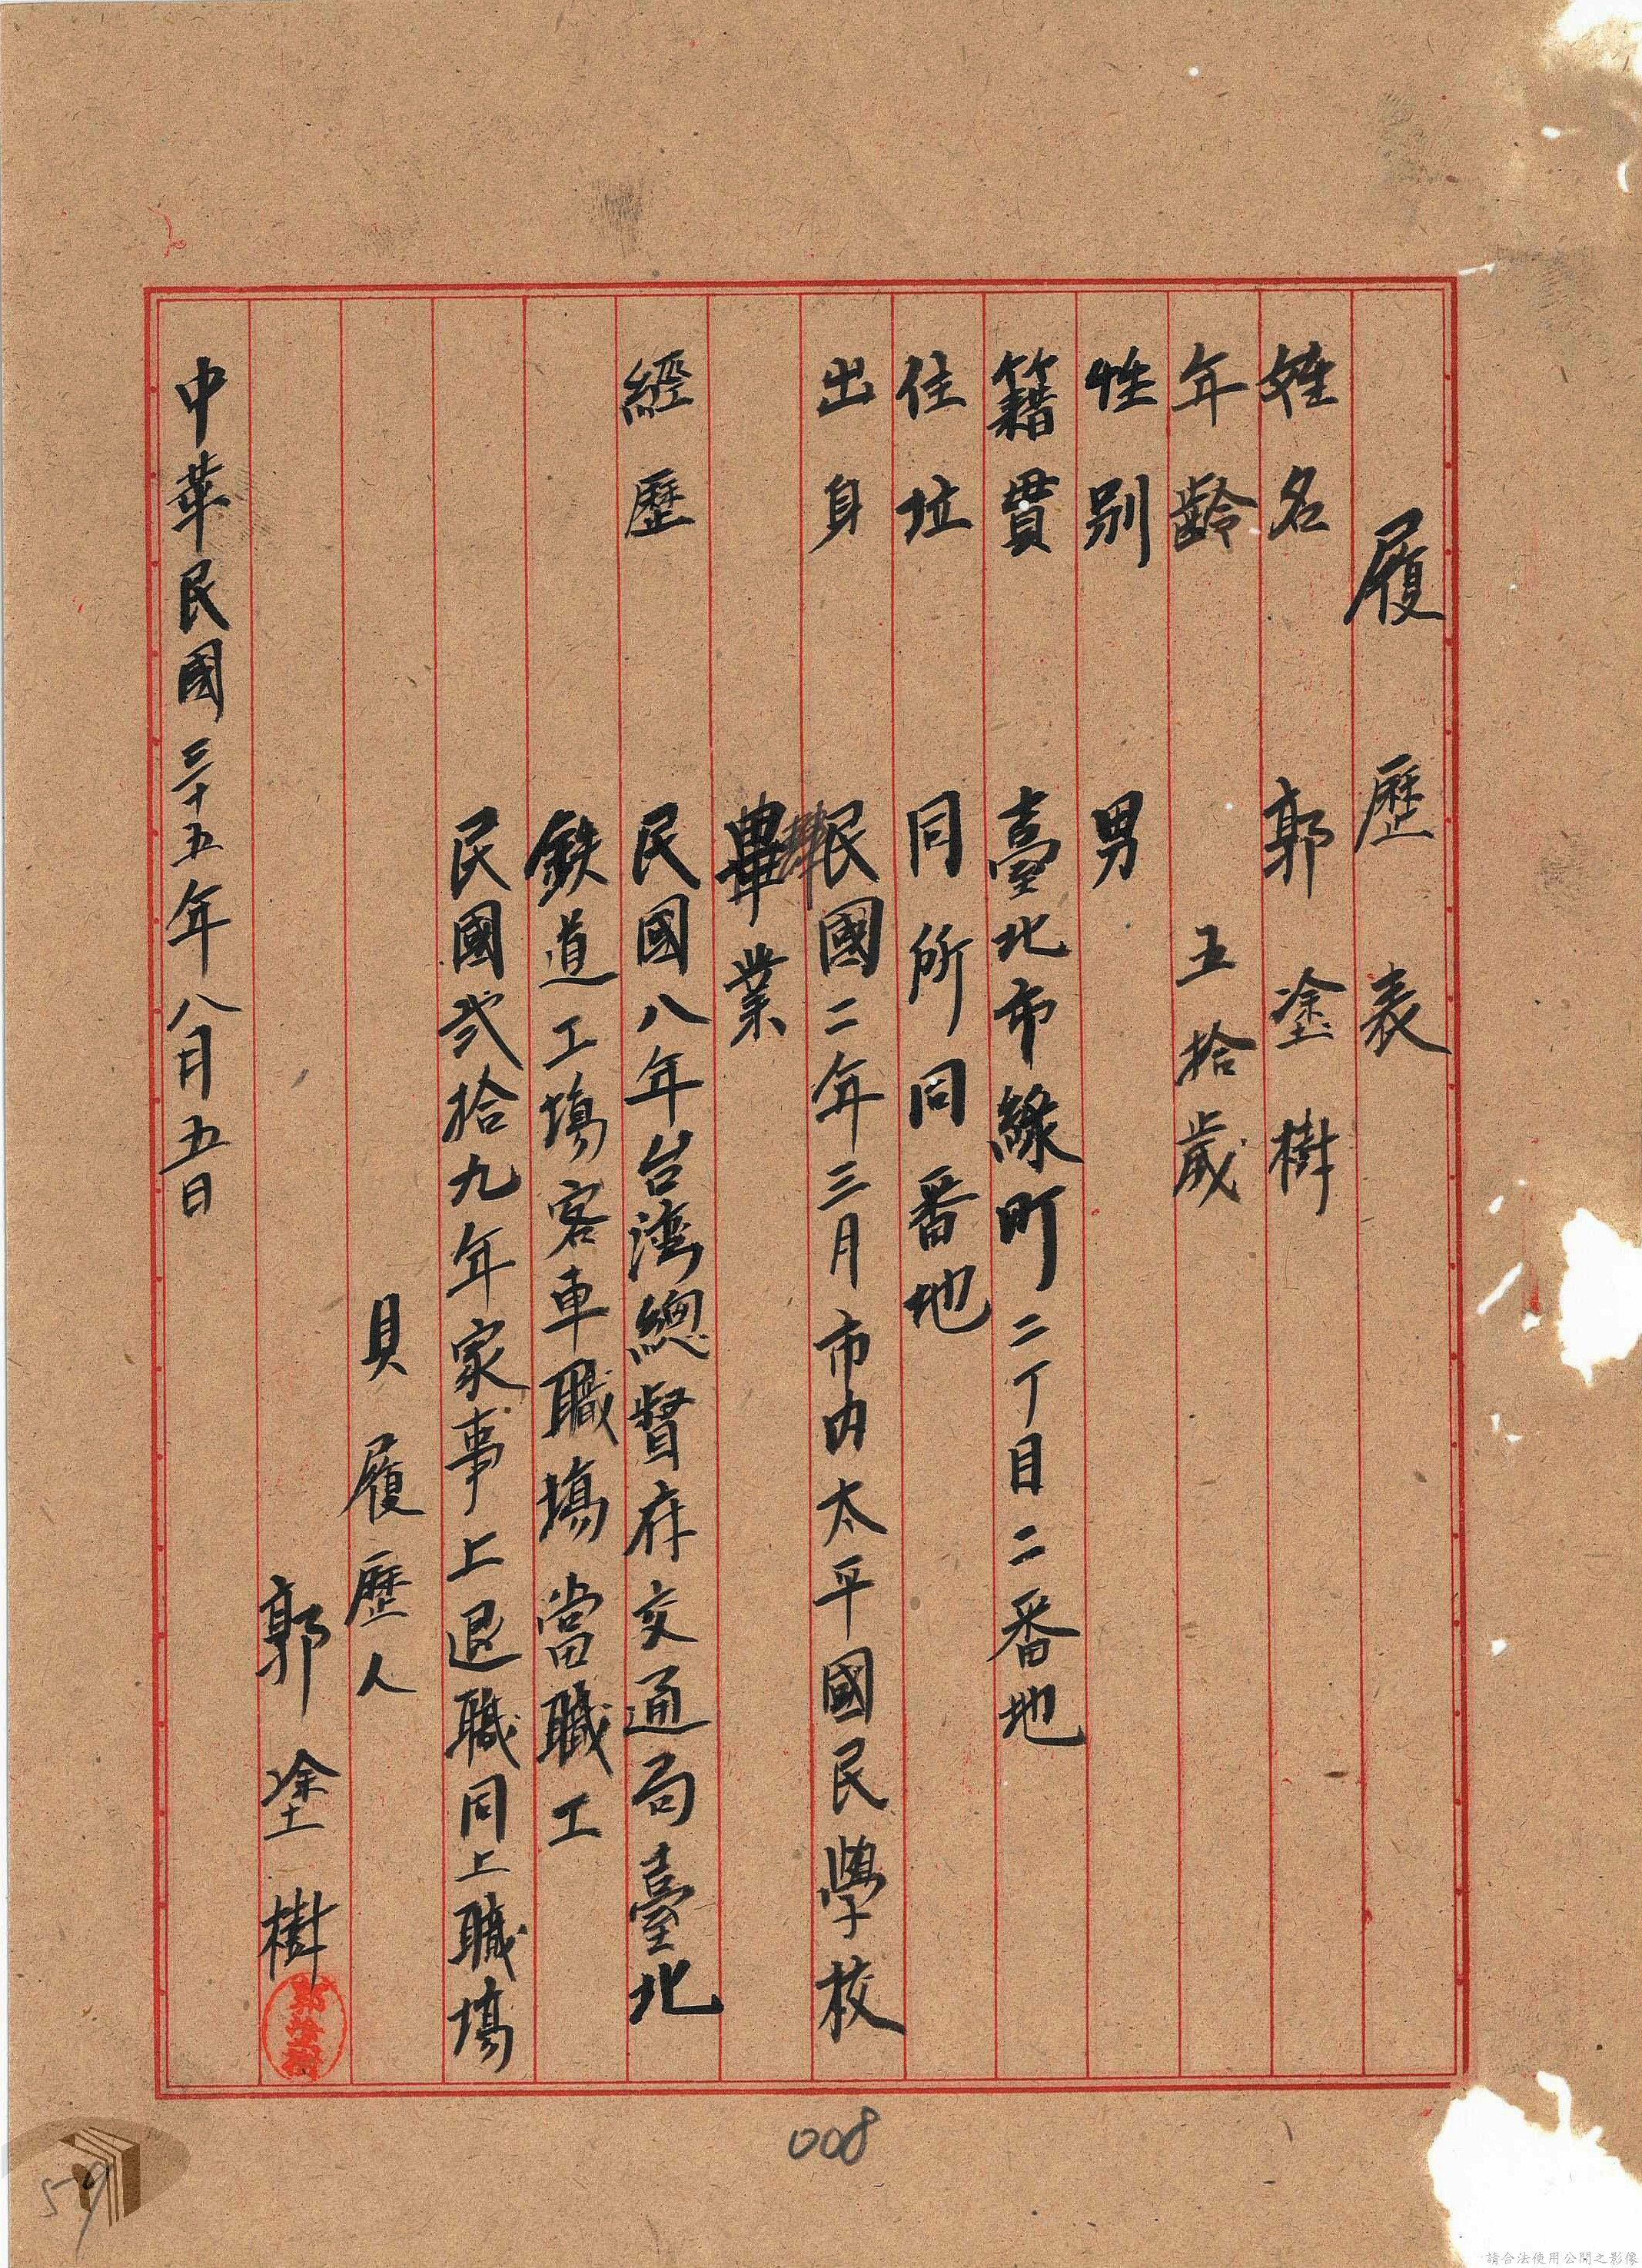 履歷表
姓名 郭塗樹
年齡 五拾歲
性別 男
籍貫 臺北市綠町二丁目二番地
住址 同所同番地
出身 民國二年三月市內太平國民學校
畢業
經歷 民國八年台灣總督府交通局臺北
鉄道工場客車職場當職工
民國弍拾九年家事上退職同上職場
具履歷人
郭塗樹
郭塗樹
中華民國三十五年八月五日
008
59
請合法使用公開之影像